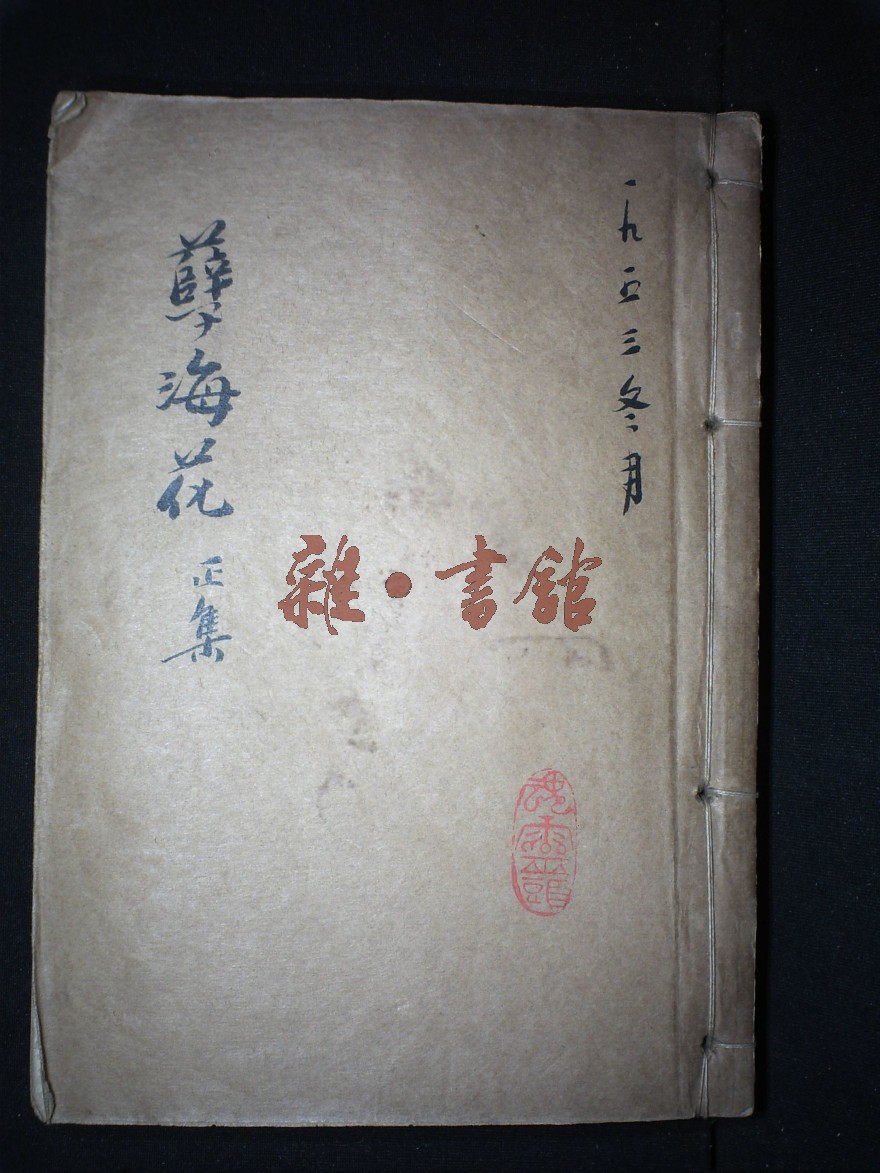 一九五三冬月
孽海花 正集
雜·書館